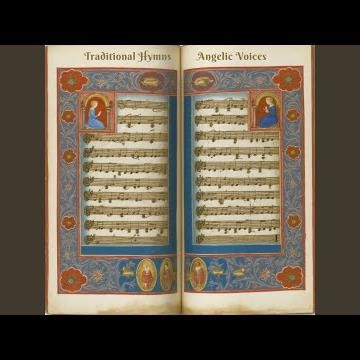 Traditional Hymns
Angelic Voices